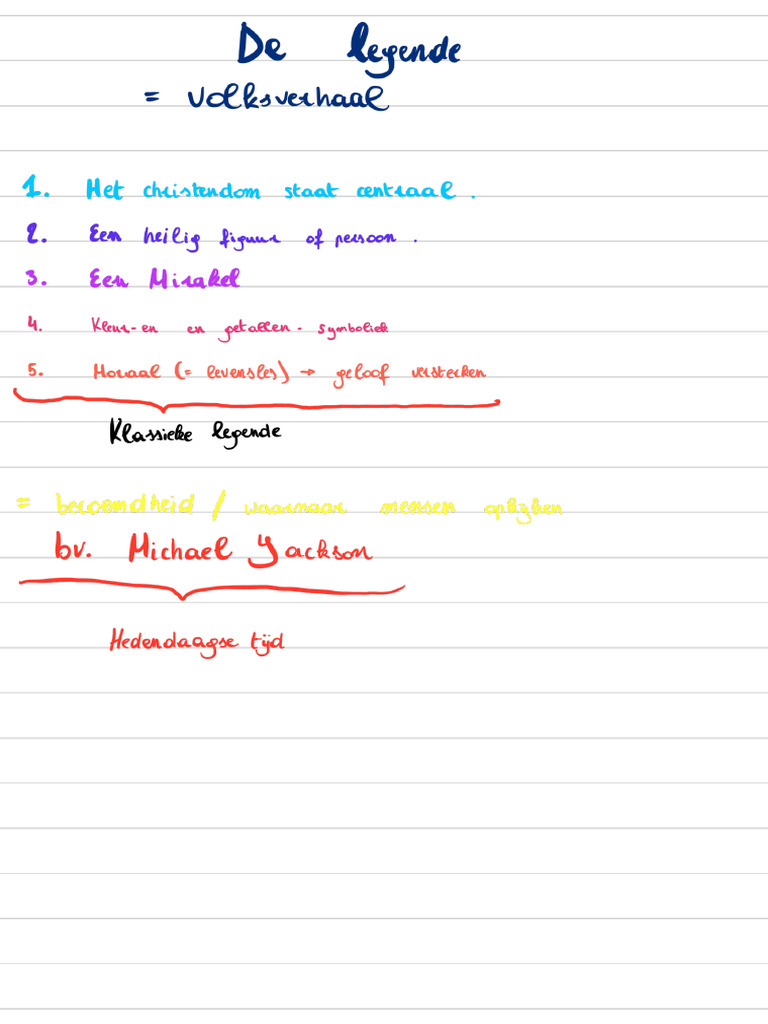 De legende
= volksverhaal
1. Het christendom staat centraal.
2. Een heilig figuur of persoon.
3. Een Mirakel
4. Kleur-en en getallen-symboliek
5. Moraal (= levensles) → geloof versterken
Klassieke legende
= beroemdheid / waarnaar mensen opkijken
bv. Michael Jackson
Hedendaagse tijd